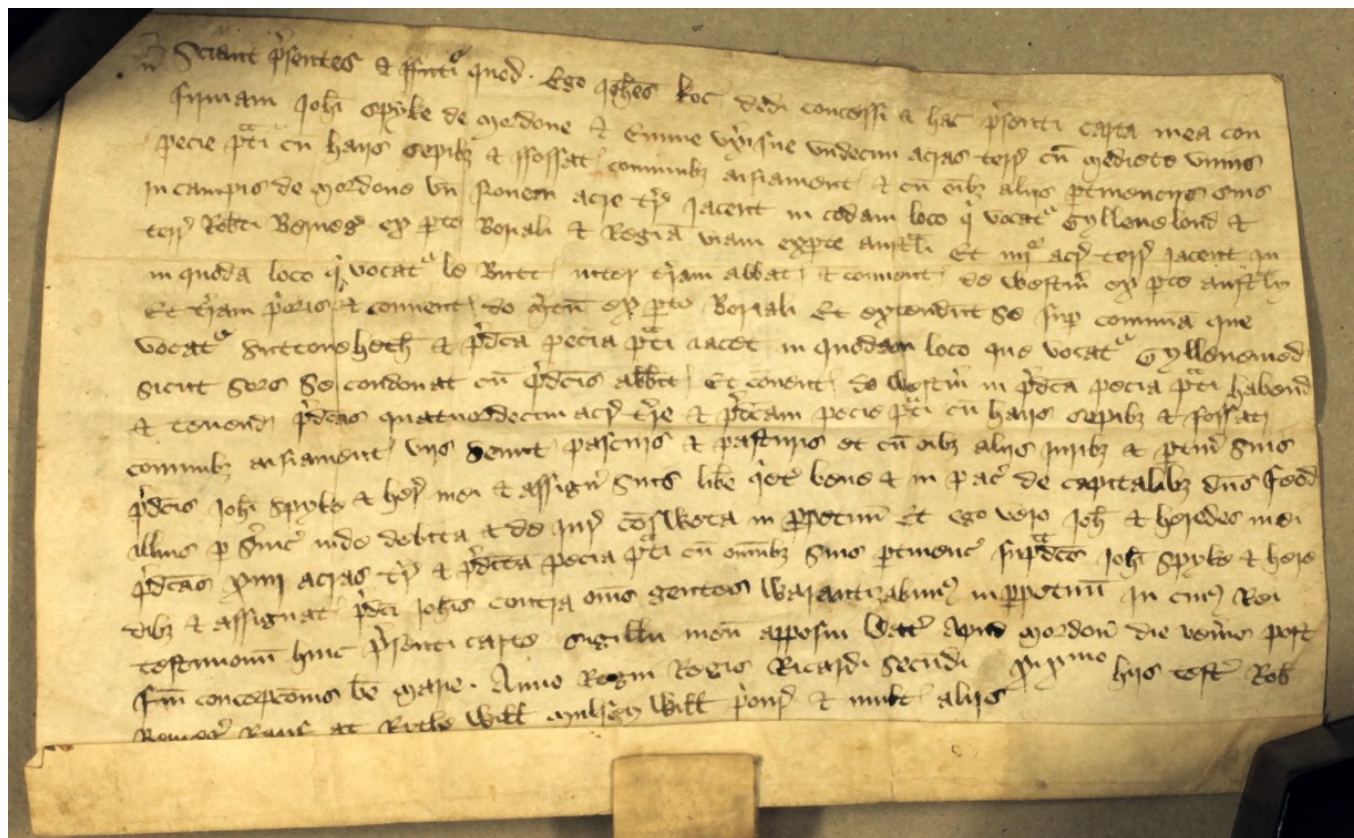 Sciant p'sentes & ffuti quod Ego Joh'es koc dedi concessi & hac p'senti carta mea con
firmam Joh'i Spyke de Mordone & Emme ux'i sue undecim acras terr' cu' medietate unius
pecie p'ti cu' haiis sepib; & ffossat' com'unib; aisiament' & cu' o'ib; aliis p'tinenciis suis
in campis de Mordone un' acre t're Jacent in eodam loco q' vocat' Gyllenelond &
terr' Rob'ti Berneg' ex p'te Boriali & Regia' viam ex p'te austr'li Et iiij acr' terr' Jacent in
in quoda' loco q' vocat' le Butt' inter t'ram abbat' & convent' de Westm' ex p'te austr'li
Et t'ram p'oris & convent' de M'ton' ex p'te Boriali Et extendu't se sup' com'una' que
vocat' Suttoneheth & p'dc'a pecia p'ti iacet in quodam loco que vocat' Gyllenemed
sicut sors se condonat cu' p'dc'is abb't' Et co'vent' de Westm' in p'dc'a pecia p'ti habend'
& tenend' p'dc'as quatuordecim acr' t're & p'dc'am pecie p'ti cu' haiis sepib; & fossat'
com'unib; aisiament' viis semit' pascuis & pasturis et cu' o'ib; aliis iurib; & p'tin' suis
p'dc'is Joh'i Spyke & her' mei & assign' suis lib'e q'ete bene & in pac' de capitalib; d'nis feod'
illius p' s'vic' inde debita & de iur' co'sweta in p'petuu' Et ego vero Joh' & heredes mei
p'dc'as xiiij acras t'r' & p'dc'ca pecia p'ti cu' omnib; suis p'tinenc' sup'dc'o Joh'i Spyke & here
dib; & assignat' p'dc'i Joh'is contra om'es gentes Warantizabim' in p'petuu' In cui' Rei
testimoniu' huic p'senti carte sigillu' meu' apposui Dat' Apud Mordon' die ven'is post
f'm concepc'onis b'e Marie . Anno Regni Regis Ricardi Secu'di hiis test' Rob'
Berneg' Rauf at Rithe Will' Will' & mult' aliis